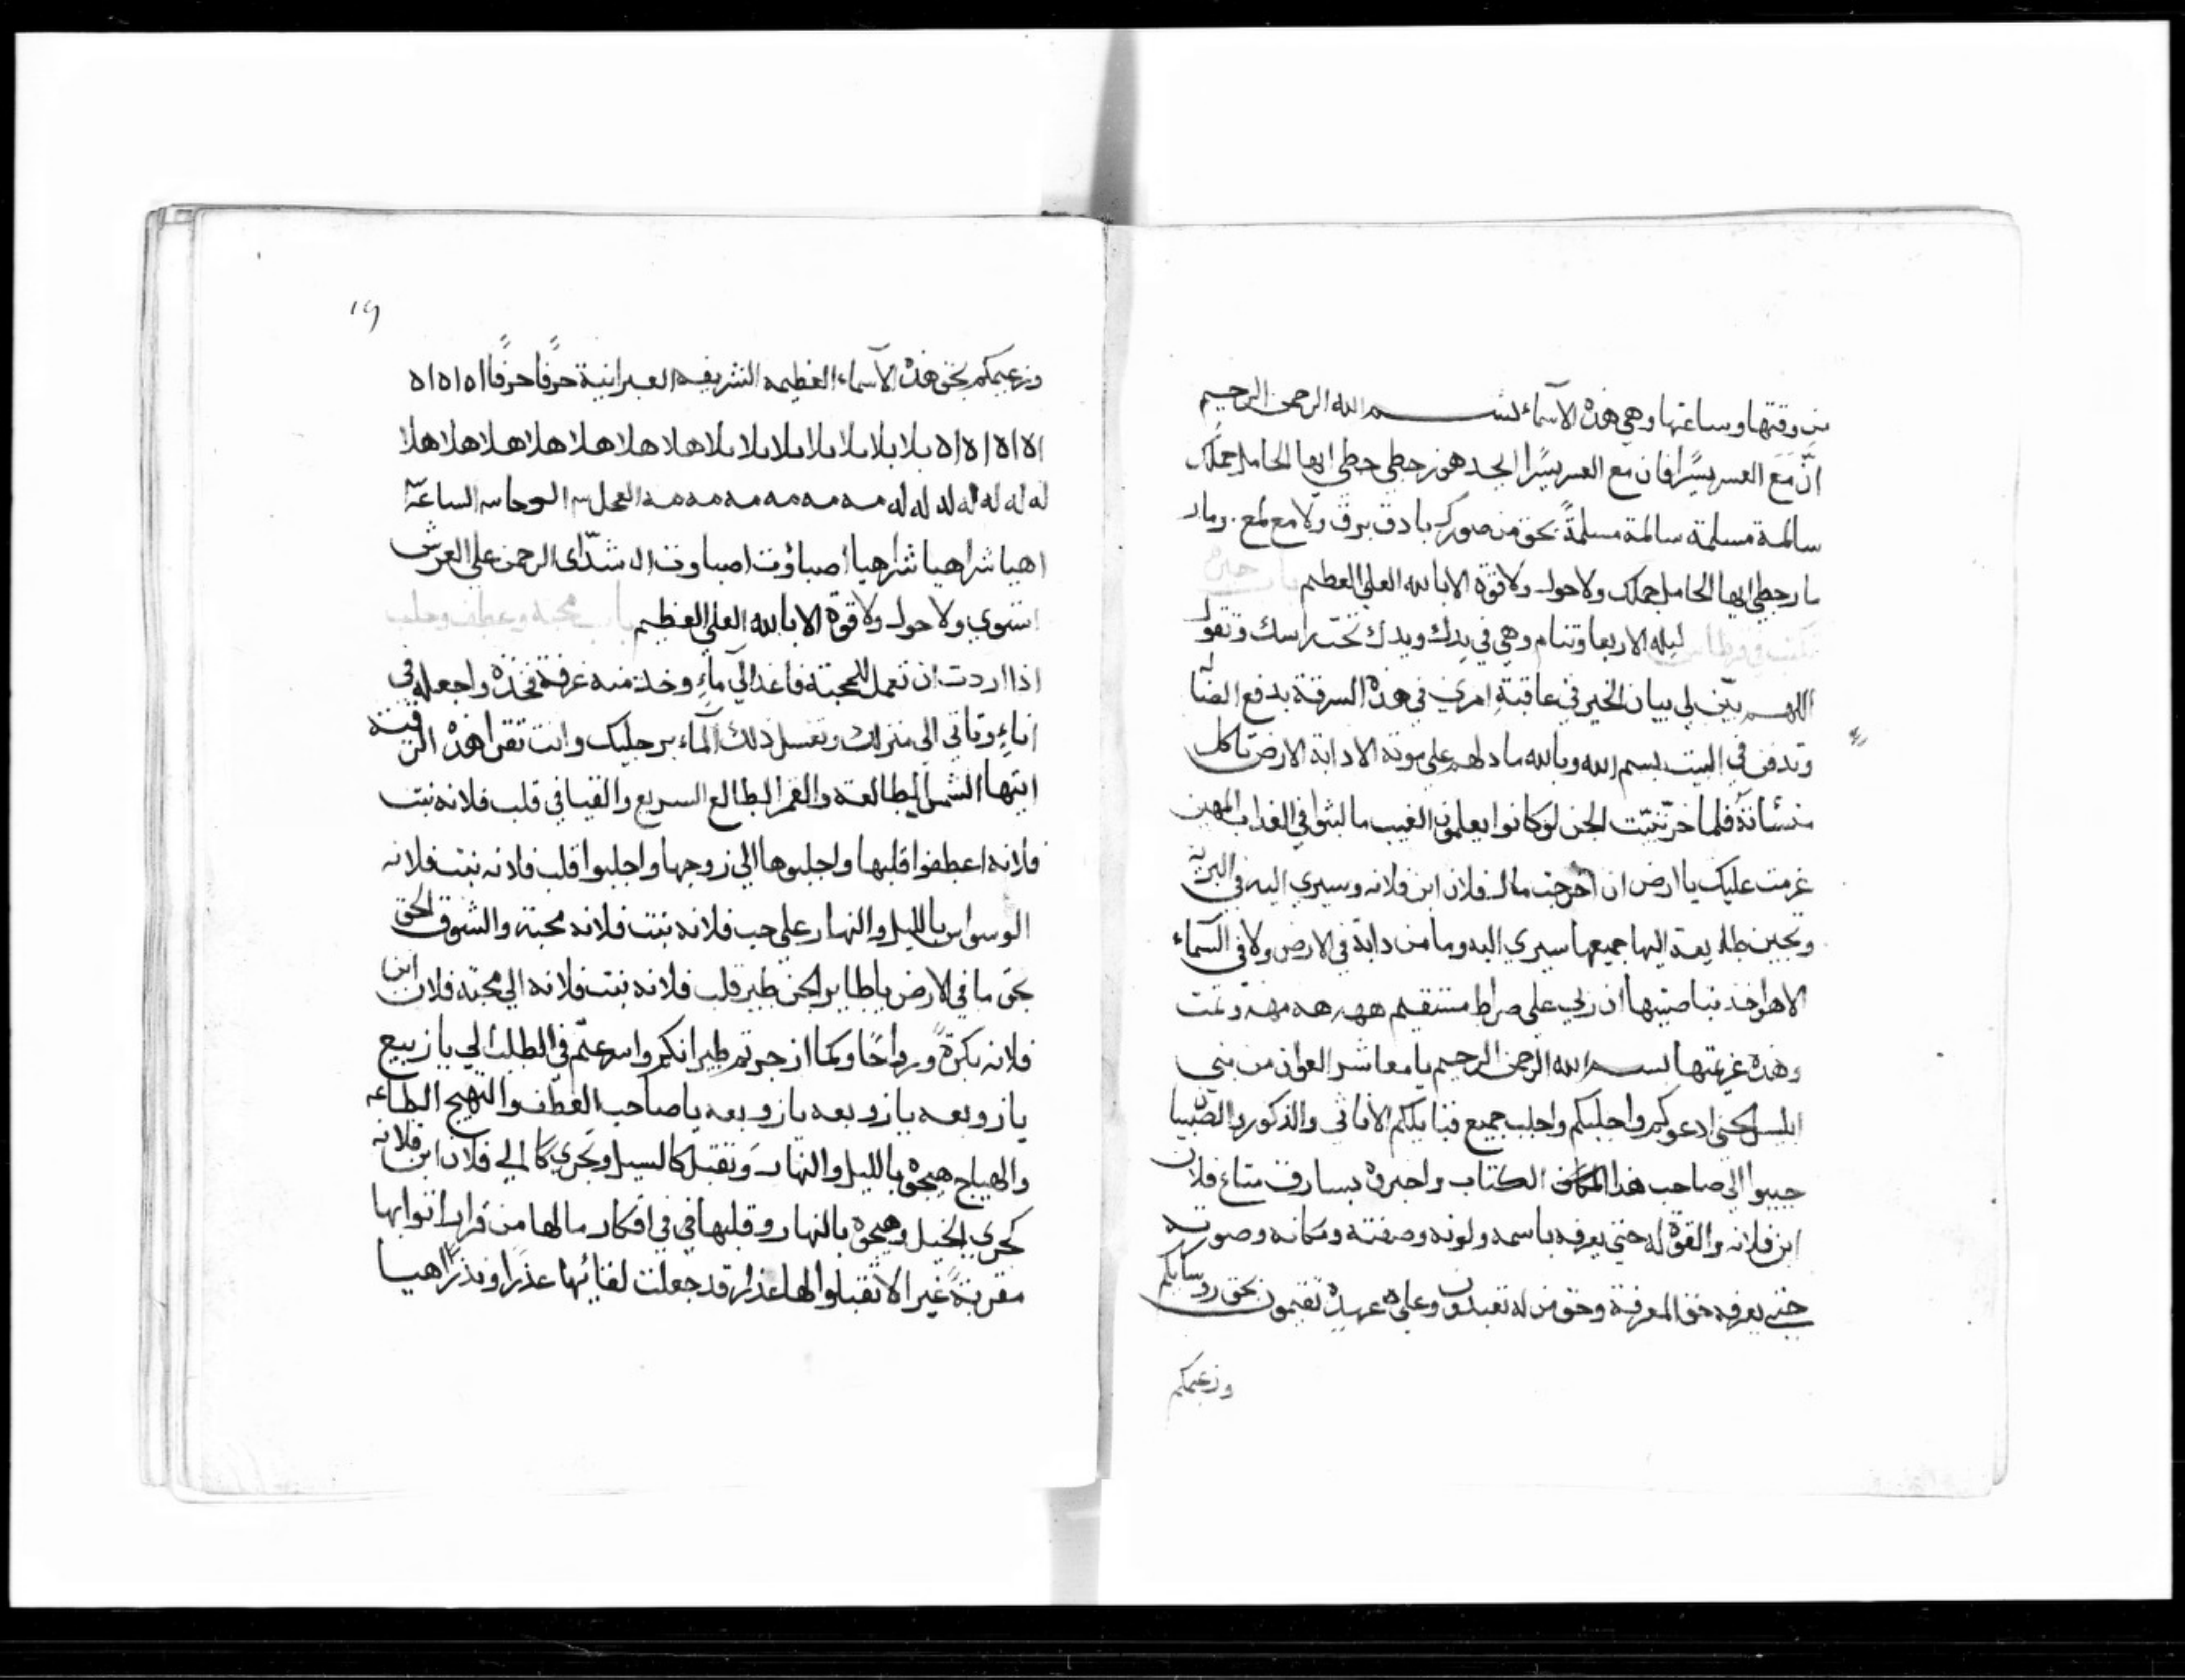 من وقتها وساعتها وهي هذه الاسماء بسم الله الرحمن الرحيم
انّ مَعَ العسر يسًرا فان مع العسر يسًرا ابجد هوز حطي حطي ايها الحامل حملك
سالمة مسلمة سالمة مسلمةً بحق من صور كر بادق برق ولامع لمع
حطي ايها الحامل حملك ولا حول ولا قوة الا بالله العلي العظيم
ليله الاربعا وتنام وهي في يدك ويدك تحت راسك وتقول
اللهم بيّن لي بيان الخير في عاقبة امري في هذه السرقة بدفع الضاله
وتدفن في البيت بسم الله وبالله ما دلهم على موته الا دابة الارض تاكل
منسأته فلما خرّ تبيّنت الجن لو كانوا يعلمون الغيب ما لبثوا في العذاب المهين
عزمت عليك يا ارض ان اخرجت مال فلان ابن فلانه وسيري اليه في البريّه
اليها جميعها سيري اليه وما من دابة في الارض ولا في السّماء
الا هو اخد بناصيتها ان ربي على صراط مستقيم وتمت
وهذه عزيمتها بسم الله الرحمن الرحيم يا معاشر العوان من بني
ابليس الجني ادعوكم واجلبكم واجلب جميع قبايلكم الاناثي والذكور والصّبيان
جيبوا الى صاحب هذا الكتاب واخبروه بسارق متاع فلان
ابن فلانه والقوّه له حتى يعرفه باسمه ولونه وصفته ومكانه وصورته
حتى يعرفه حق المعرفة وحق من له تعبدون وعلى عهده تقيمون بحق روسايكم
وزعيمكم
١٩
وزعيمكم بحق هذه الآسماء العظيمه الشريفه العبرانية حرفًا حرفًا اه اه اه
اه اه اه اه يلا يلا يلا يلا يلا يلا يلا هلا هلا هلا هلا هلا هلا هلا هلا
له له له له له له له مه مه مه مه مه مه مه العجل الوحا الساعة
اهيا شراهيا شراهيا اصباؤت اصباوت ال شدّاى الرحمن على العرش
استوي ولا حول ولا قوة الا بالله العلي العظيم
اذا اردت ان تعمل للمحبّة فاغد الى ماءٍ وخد منه غرفة بخذه واجعله في
اناءٍ وتاتي الى منزلك وتغسل ذلك الماء برجليك وانت تقرا هذه الرقية
ايتها الشمس الطالعة والقمر الطالع السريع والقيا في قلب فلانه بنت
فلانه اعطفوا قلبها واجلبوها الي زوجها واجلبوا قلب فلانه بنت فلانه
الوسواس بالليل والنهار على حب فلانه بنت فلانه محبة والشوق الحق
بحق ما في الارض يا طاير الجن طير قلب فلانه بنت فلانه الي محبّة فلان ابن
فلانه بكرةً ورواحًا وكما ازجرتم طيرانكم واسرعتم في الطلب الي يا زبيع
يا زوبعه يا زوبعه يا زوبعه يا صاحب العطف والتهيج الطاعه
والهياج هيجوه بالليل والنهار وتقبل كالسيل وتجري كا الي فلان ابن فلانه
كجري الخيل وهيجوه بالنهار وقلبها في افكار ما لها من قرار اتوا بها
مقربةً غير الا تقبلوا لها عذرا قد جعلت لقايها عذرًا ونذرًا اهيا